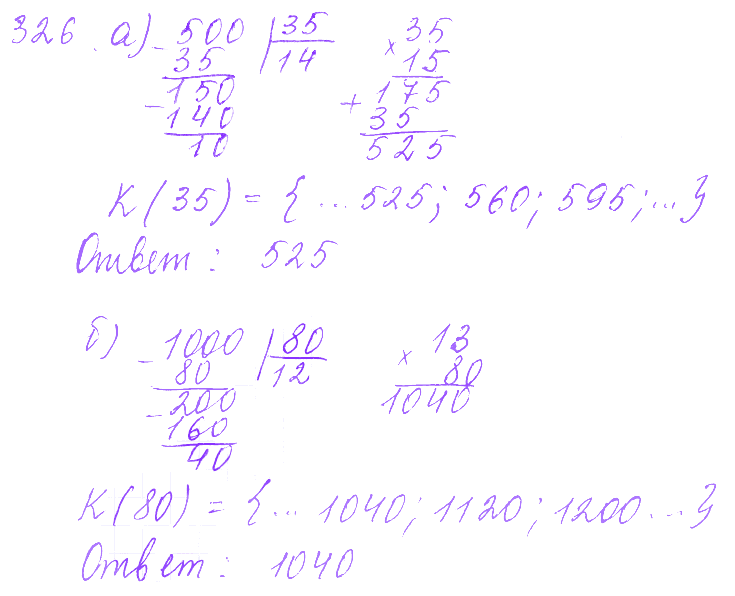 326. а) - 500 | 35 × 35
35 14 15
- 150 + 175
140 35
10 525
К(35) = {...525; 560; 595;...}
Ответ: 525
б) - 1000 | 80 × 13
80 12 80
- 200 1040
160
40
К(80) = {... 1040; 1120; 1200...}
Ответ: 1040